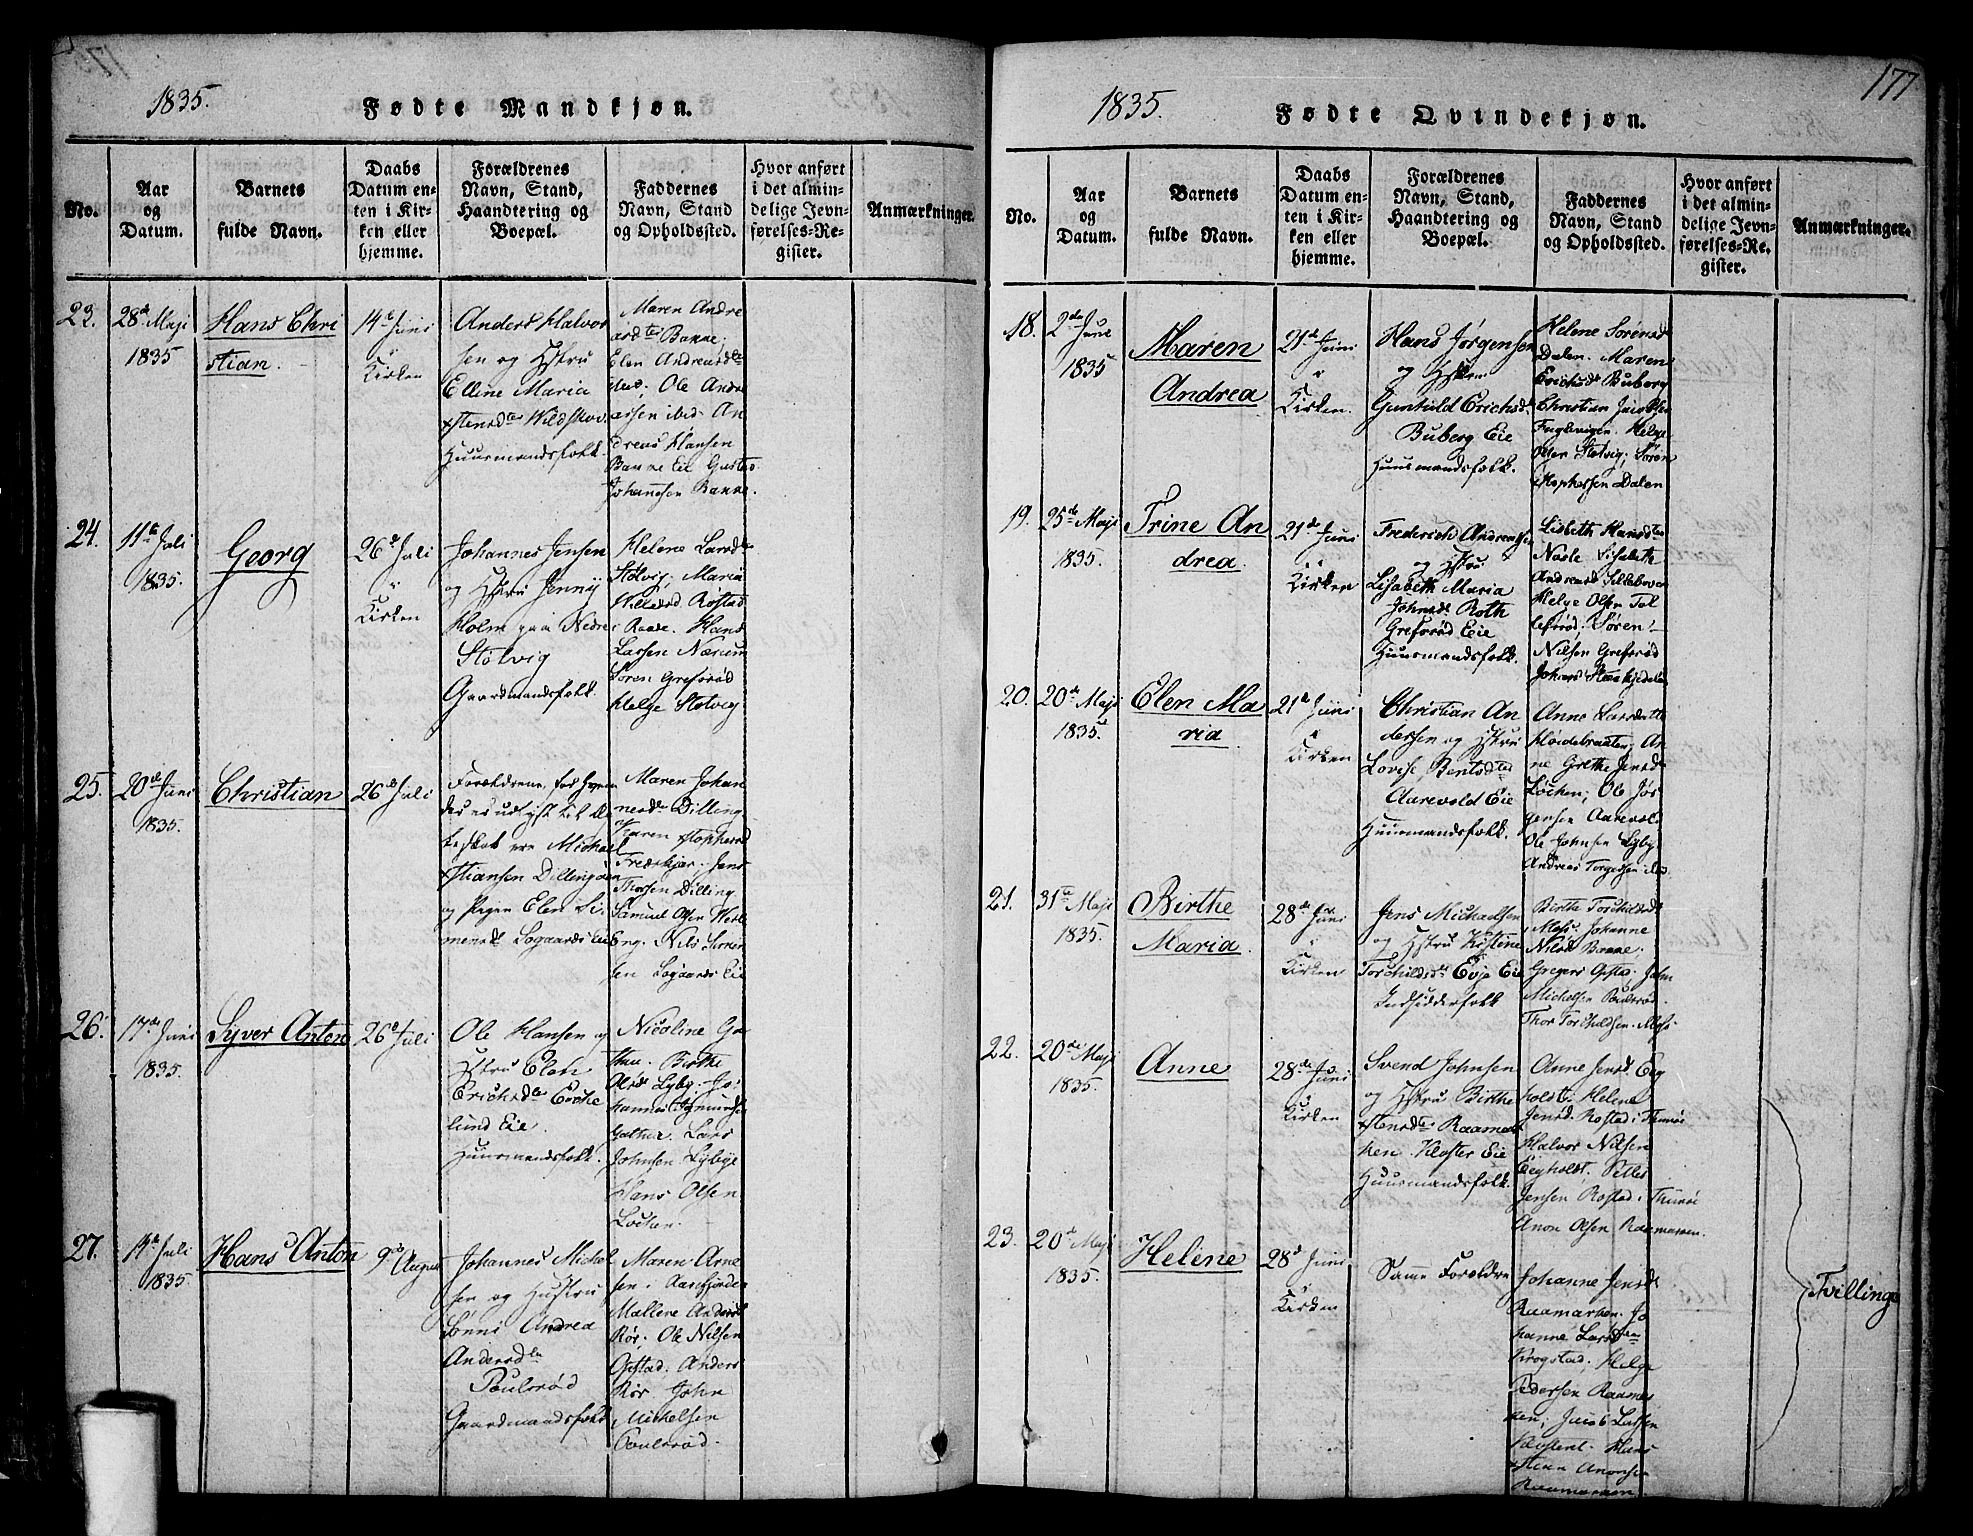 1835.
Fødte Mandkjøn.
No.
Aar
og
Datum.
Barnets
fulde Navn.
Daabs
Datum en-
ten i Kir-
ken eller
hjemme.
Forældrenes
Navn, Stand,
Haandtering og
Boepæl.
Faddernes
Navn, Stand
og Opholdssted.
Hvor anført
i det almin-
delige Jevn-
førelses-Re-
gister.
Anmærkninger.
23.
28de Maji
1835
Hans Chri
stian.
14de Juni
i
Kirken
Anders Halvor
sen og Hstru
Elline Maria
Wildskov.
Huusmandsfolk.
Maren Andre
Banne;
Elen Andreasd
Ole Andre
assen ibid. An
dreas Hansen
Banne Eie Gustav
Johannesen Banne.
24.
11te Juli
1835.
Georg
26de Juli
i
Kirken
Johannes Jensen
og Hstru Jenny
Holm paa Nedre
Stølvig
Gaardmandsfolk.
Helene Larsd
Stølvig; Maria
Rostad
i Raade. Hans
Larsen Nærum
Søren Grefsrød
Helge Stølvig
25.
20de Juni
1835.
Christian
26de Juli
Forældrene,
Michael
Dillingøen
og Pigen Elen Si
mensd Sogaards Eie
Maren Johan
nesd Dilling
Karen
Jens
Thorsen Dilling
Samuel Olsen
Eng. Nils
sen Sogaards Eie
26.
17de Juni
1835.
Syver Anton
26de Juli
Ole Hansen og
Hstru Elen
Erichsd
lund Eie.
Huusmandsfolk.
Nicoline Ga
Birthe
Olsd Lyby. Jo
hannes
Lars
Johnsen Lybye
Hans Olsen
Løchen.
27.
14de Juli
1835
Hans Anton
9de August
Johannes Michel
sen og Hustru
Andrea
Andersd
Poulsrød
Gaardmandsfolk
Maren Arne
Mallene Andersd
Rør. Ole Nilsen
Opstad. Anders
Rør John
Michelsen
Poulsrød.
177
1835.
Fødte Qvindekjøn.
No.
Aar
og
Datum.
Barnets
fulde Navn.
Daabs
Datum en-
ten i Kir-
ken eller
hjemme.
Forældrenes
Navn, Stand,
Haandtering og
Boepæl.
Faddernes
Navn, Stand
og Opholdssted.
Hvor anført
i det almin-
delige Jevn-
førelses-Re-
gister.
Anmærkninger.
18.
2de June
1835
Maren
Andrea
21de Juni
i
Kirken.
Hans Jørgensen
og Hstru
Gunhild Erichsd
Buberg Eie
Huusmandsfolk.
Helene Sørensd
Dalen. Maren
Erichsd Buberg
Christian
Fuglevigen. Helge
Olsen Stølvig; Søren
Dalen
19.
25de Maji
1835.
Trine An
drea.
21de Juni
i
Kirken
Frederich Andreasen
og Hstru
Lisabeth Maria
Johnsd. Roth
Grefsrød Eie
Huusmandsfolk.
Lisbeth Hansdter
Lisabeth
Helge Olsen Tal
lefsrød; Søren
Nilsen Grefsrød
20.
20de Maji
1835.
Elen Ma
ria.
21de Juni
i
Kirken
Christian An
dersen og Hstru
Lovise Bentsd
Aarevold Eie
Huusmandsfolk.
Anne Larsdatte
An
ne Grethe Jensd
Løchen; Ole Jør
gensen Aarevold
Ole Johnsen Lyby
Andreas Torgersen ibid.
21.
31te Maji
1835.
Birthe
Maria.
28de Juni
i
Kirken
Jens Michaelsen
og Hstru Kistine
Torchildsd Evje Eie
Indsidderfolk
Birthe Torchildsd
Moss. Johanne
Nilsd Banne;
Gregers Opstad. John
Michelsen Poulsrød.
Thor Torchildsen. Moss
22.
20de Maji
1835.
Anne
28de Juni
i
Kirken
Svend Johnsen
og Hstru Birthe
Raamar
ken. Kloster Eie
Huusmandsfolk.
Anne Jensd Eeg
holdt. Helene
Jensd. Rostad i Thunø
Halvor Nilsen
Eegholdt.
Jensen Rostad i Thunø
Anon Olsen Raamarken.
23.
20de Maji
1835.
Helene
28de Juni
i
Kirken
Samme Forældre
Johanne Jensd
Raamarken. Jo
hanne Larsd
Krogstad. Helge
Pedersen Raamar
ken; Jacob Larsen
Hans
Anonsen
Raamarken
Tvillinge